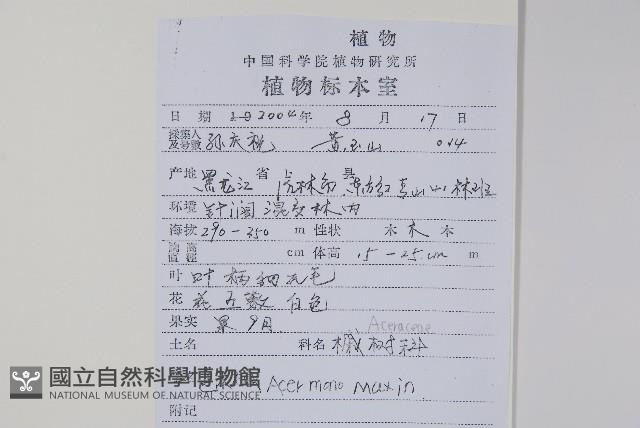 植物
中国科学院植物研究所
植物标本室
日期 19 2004年 8月 17日
採集人及号数 孙庆 黄玉山 014
产地 黑龙江省 虎林市县 东方红 青山 林班
环境 针阔混交林内
海拔 290-350 m 性状 木本
胸高直径 cm 体高 15-25cm m
叶 叶柄细无毛
花 花 白色
果实 果9月. Aceraceae
土名 科名 槭树科
Acer mono Maxim
附记
國立自然科學博物館
NATIONAL MUSEUM OF NATURAL SCIENCE